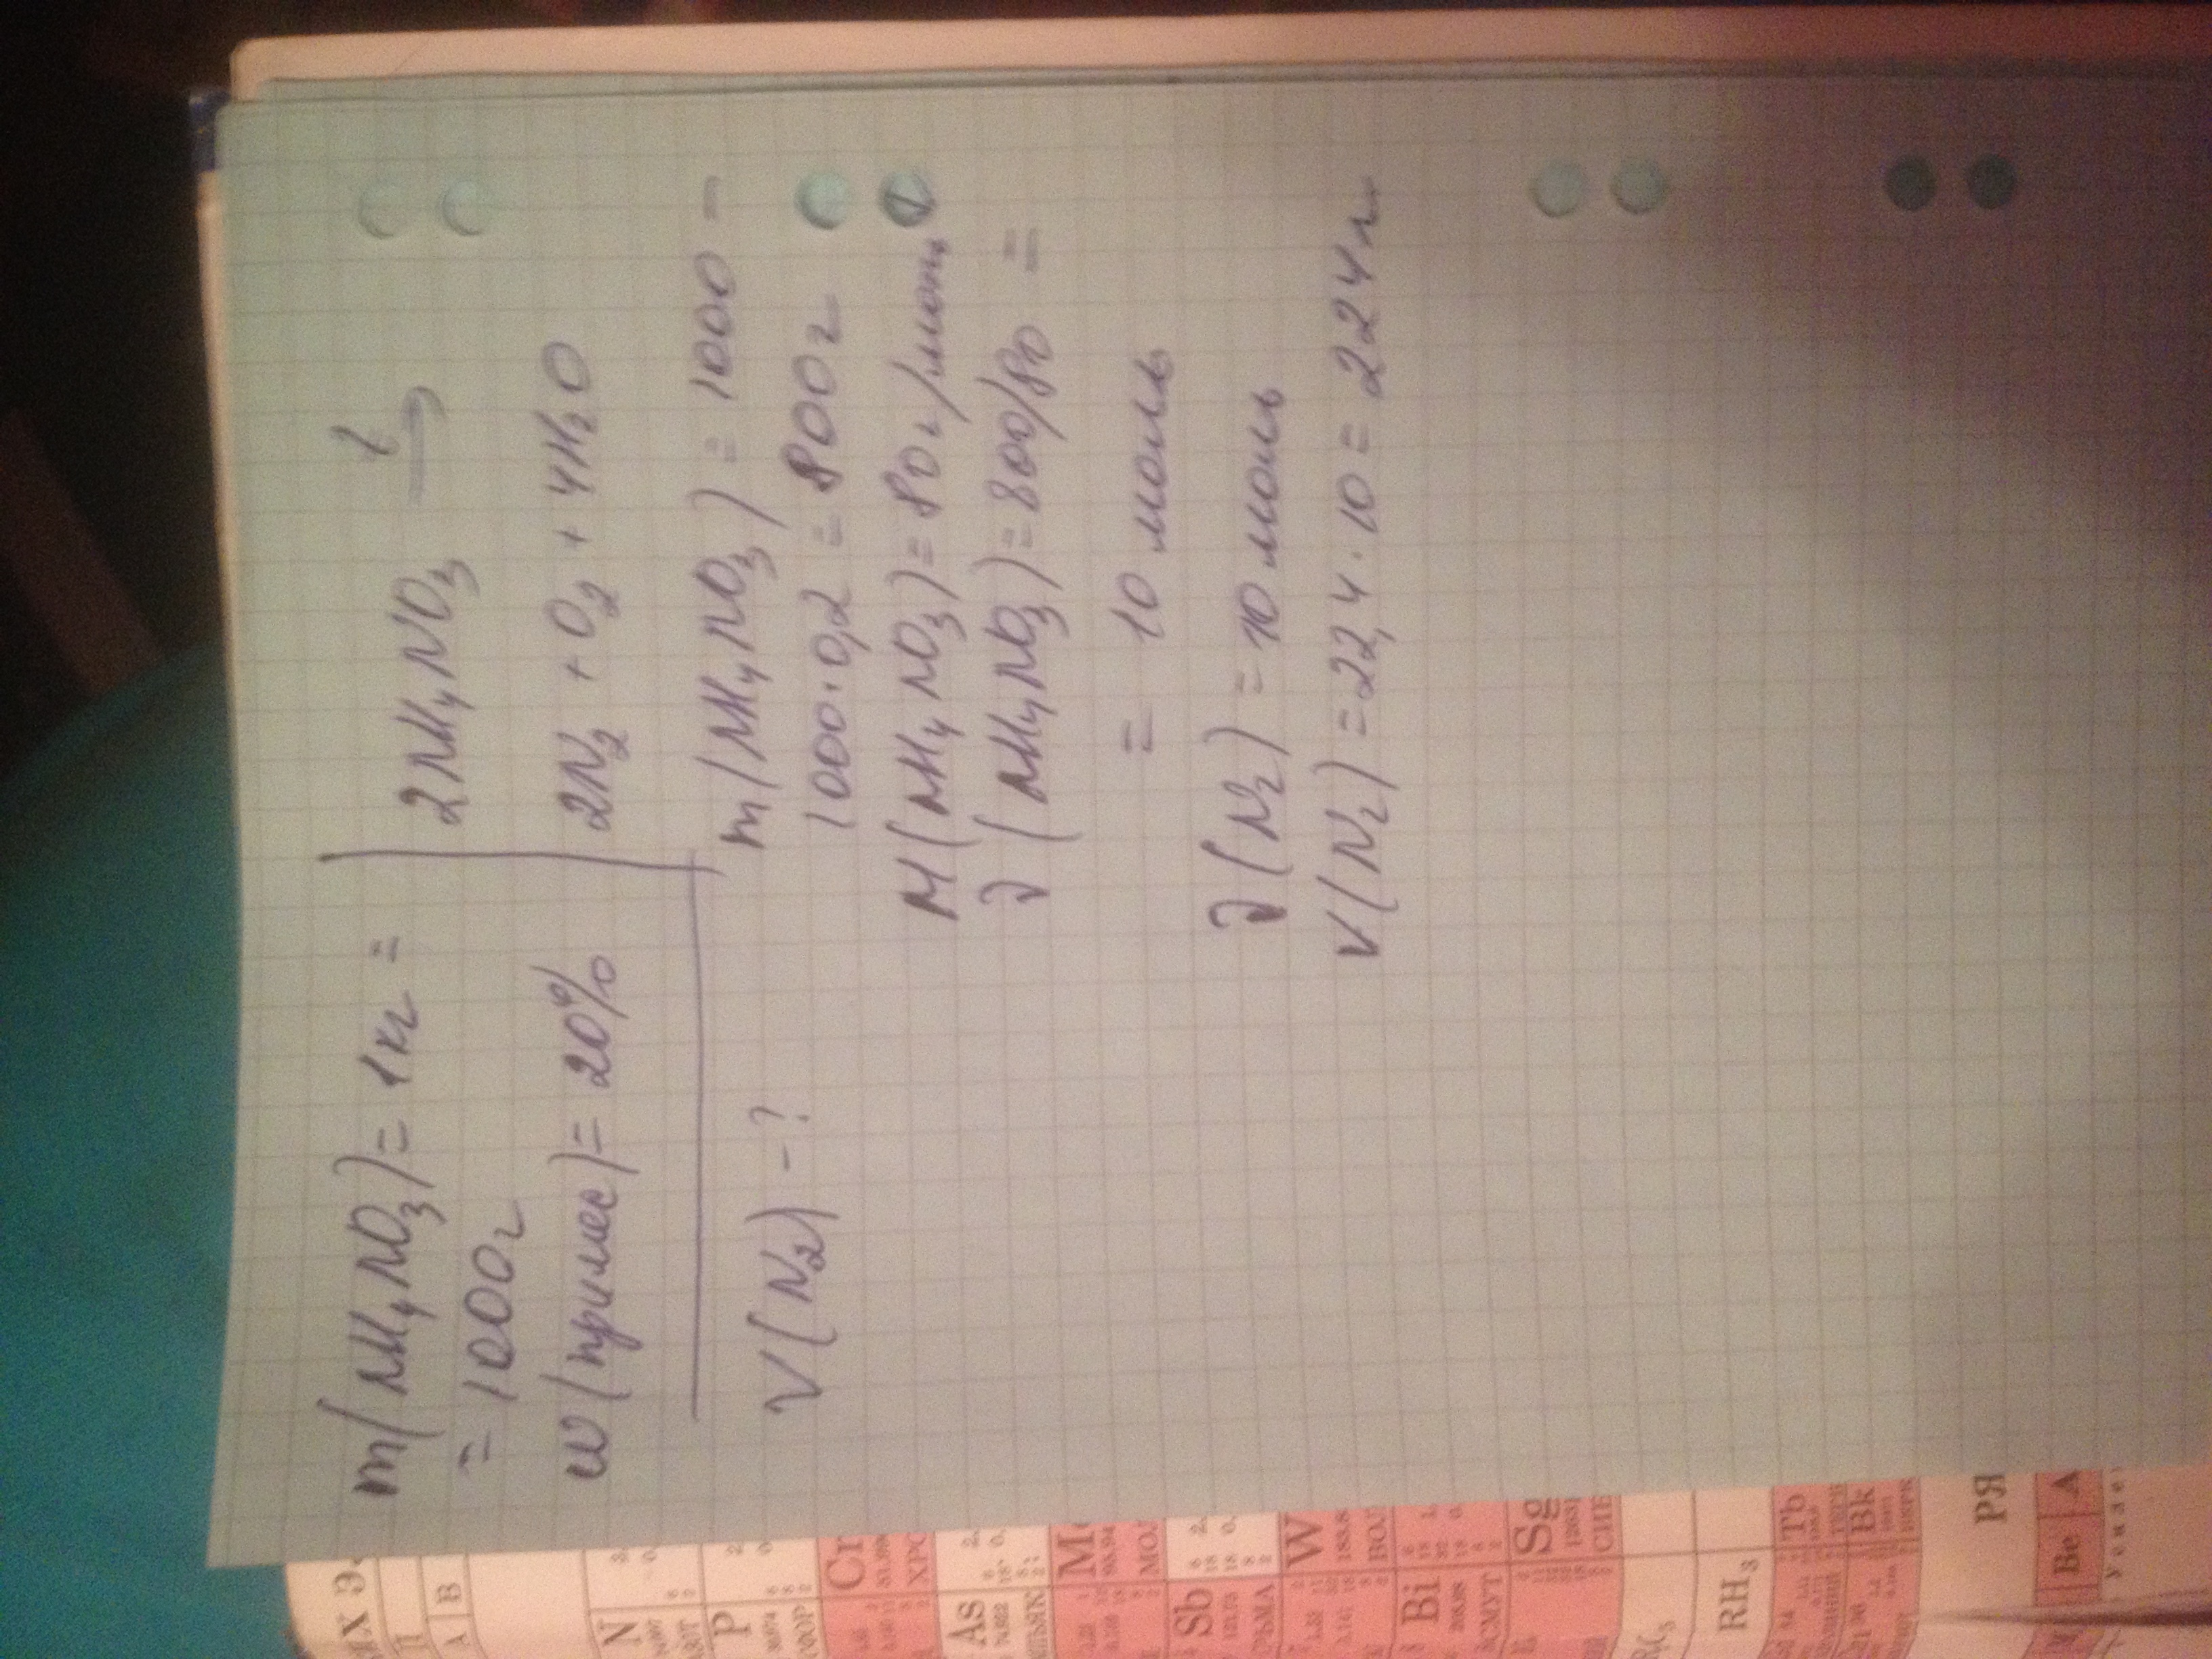 m(NH₄NO₃) = 1кг =
= 1000г
w(примес) = 20%
V(N₂) - ?
2NH₄NO₃ t→
2N₂ + O₂ + 4H₂O
m(NH₄NO₃) = 1000 -
1000·0,2 = 800г
M(NH₄NO₃) = 80г/моль
ν(NH₄NO₃) = 800/80 =
= 10 моль
ν(N₂) = 10 моль
V(N₂) = 22,4·10 = 224л
A B
N
P
Cr
As
Sb
W
Bi
Sg
RH₃
Tb
Bk
РЯ
Be